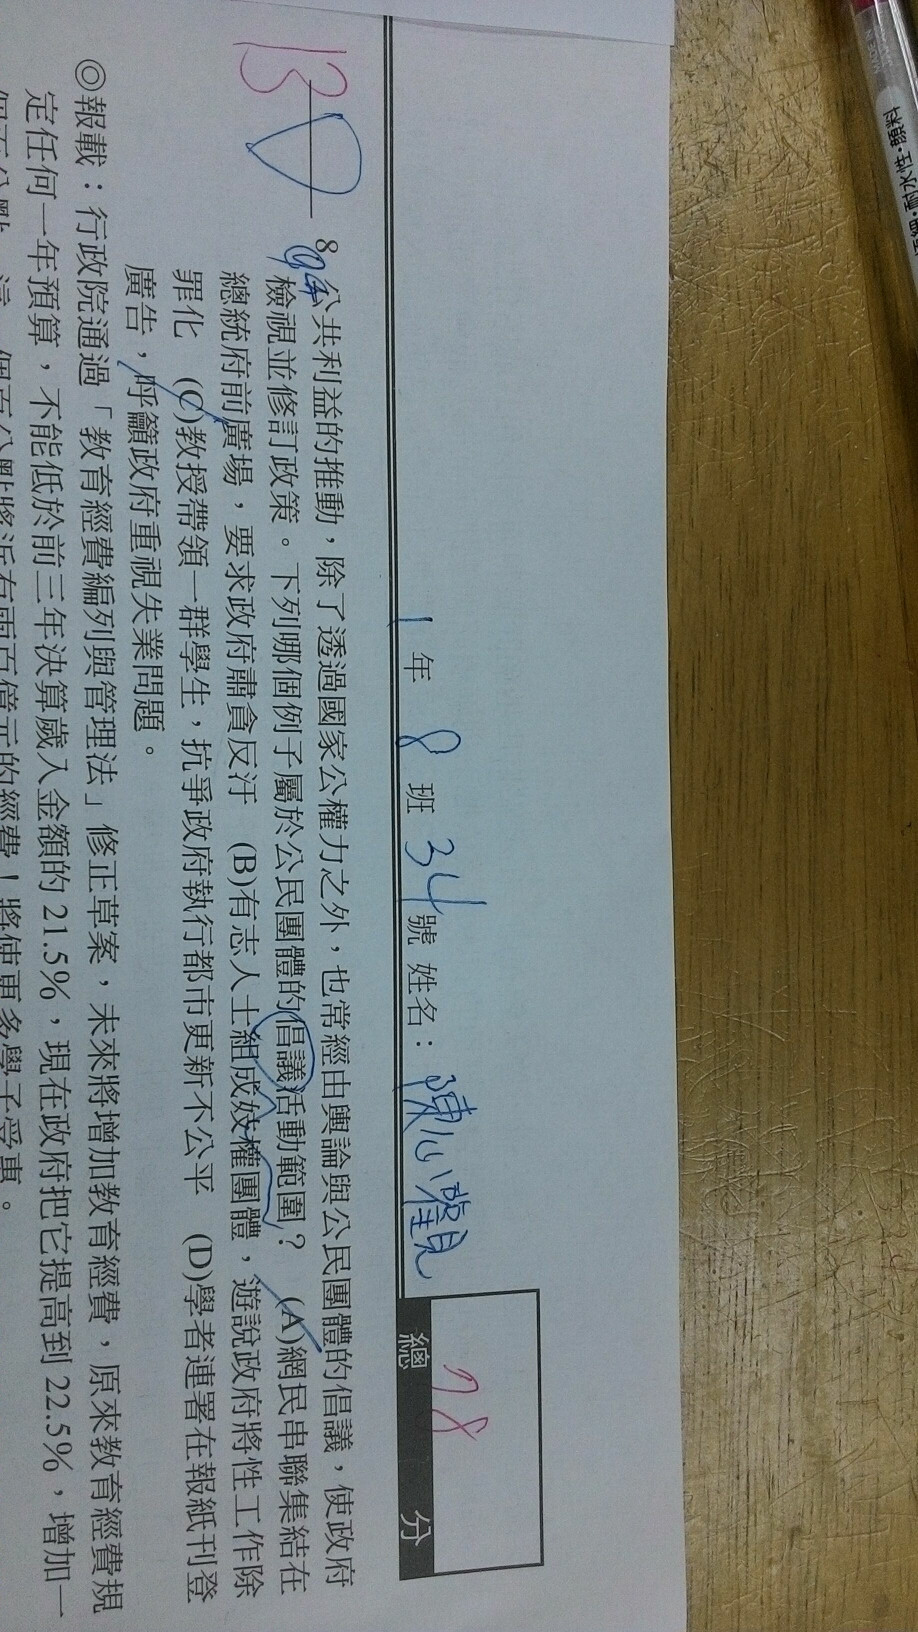 1 年 8 班 34 號 姓名：陳
總 分
78
B D 8. 公共利益的推動，除了透過國家公權力之外，也常經由輿論與公民團體的倡議，使政府
檢視並修訂政策。下列哪個例子屬於公民團體的倡議活動範圍？ (A)網民串聯集結在
總統府前廣場，要求政府肅貪反汙 (B)有志人士組成妓權團體，遊說政府將性工作除
罪化 (C)教授帶領一群學生，抗爭政府執行都市更新不公平 (D)學者連署在報紙刊登
廣告，呼籲政府重視失業問題。
◎報載：行政院通過「教育經費編列與管理法」修正草案，未來將增加教育經費，原來教育經費規
定任何一年預算，不能低於前三年決算歲入金額的 21.5%，現在政府把它提高到 22.5%，增加一
個百分點，這一個百分點將近有兩百億元的經費！將使更多學子受惠。
耐水性·顏料